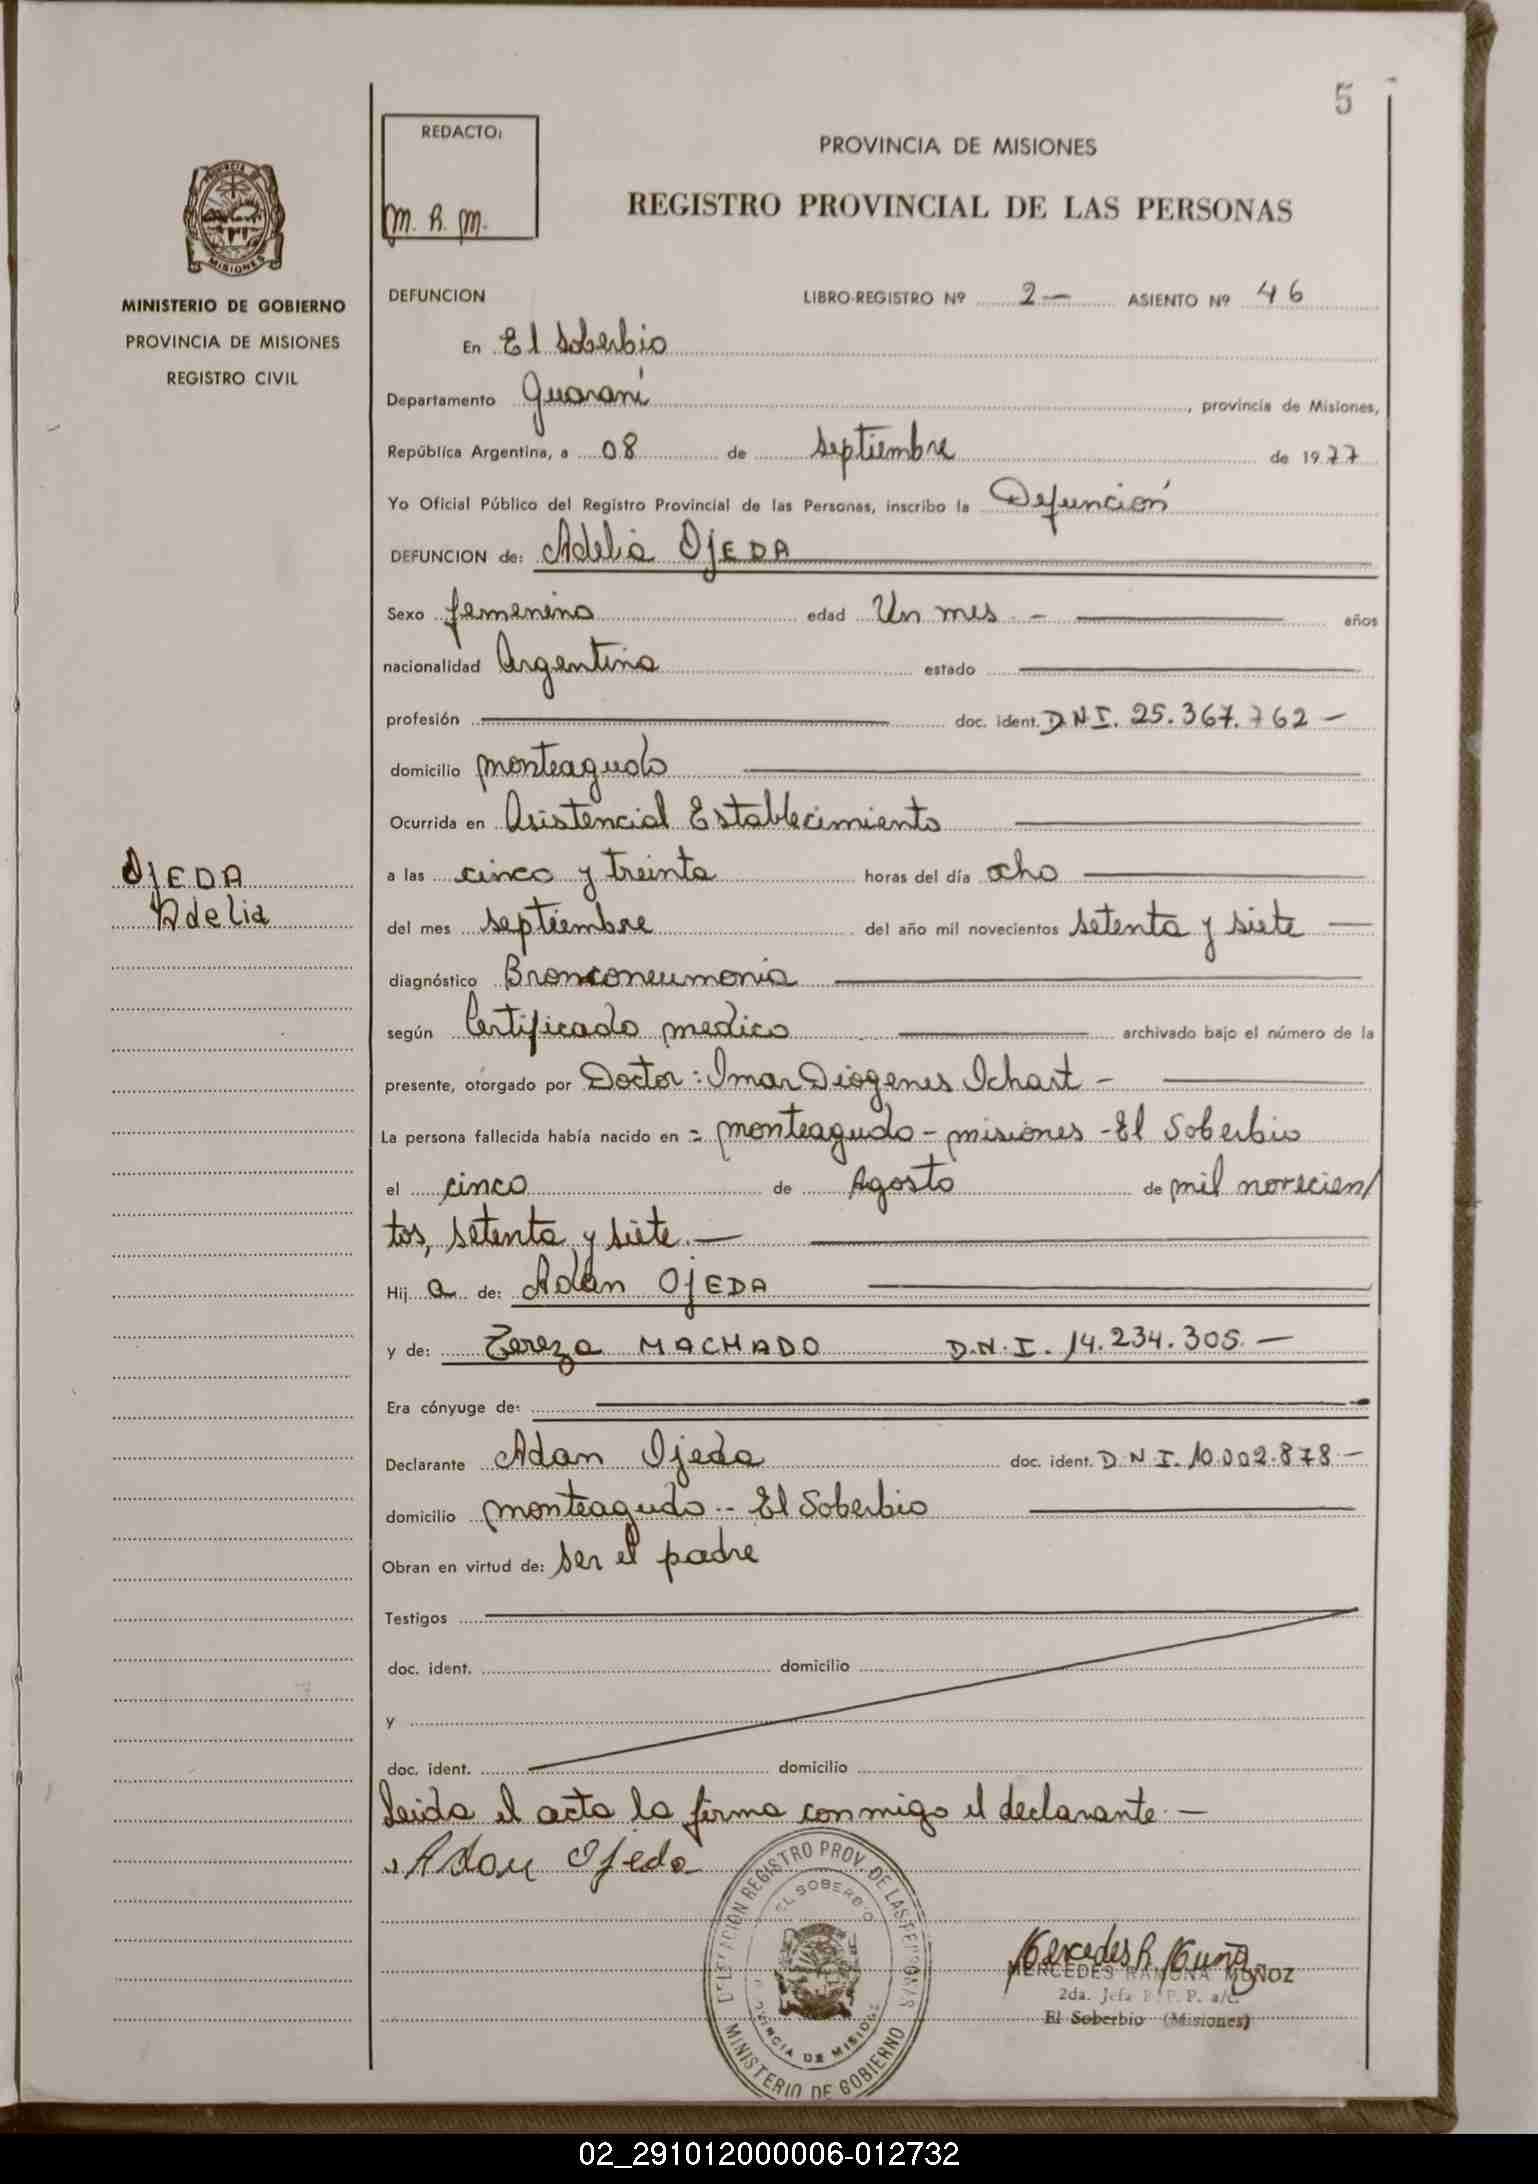 5
REDACTO:
M. R. M.
PROVINCIA DE MISIONES
REGISTRO PROVINCIAL DE LAS PERSONAS
MISIONES
MINISTERIO DE GOBIERNO
PROVINCIA DE MISIONES
REGISTRO CIVIL
OJEDA
Adelia
DEFUNCION LIBRO-REGISTRO Nº 2 — ASIENTO Nº 46
En El Soberbio
Departamento Guaraní, provincia de Misiones,
República Argentina, a 08 de septiembre de 1977
Yo Oficial Público del Registro Provincial de las Personas, inscribo la Defunción
DEFUNCION de: Adelia OJEDA
Sexo femenino edad Un mes - años
nacionalidad Argentina estado
profesión doc. ident. D.N.I. 25.367.762 —
domicilio monteagudo
Ocurrida en Asistencial Establecimiento
a las cinco y treinta horas del día ocho
del mes septiembre del año mil novecientos setenta y siete —
diagnóstico Bronconeumonia
según Certificado medico archivado bajo el número de la
presente, otorgado por Doctor: Imar Diogenes Ichart -
La persona fallecida había nacido en = monteagudo - misiones - El Soberbio
el cinco de Agosto de mil novecien/
tos, setenta y siete. —
Hij a de: Adan OJEDA
y de: Tereza MACHADO D.N.I. 14.234.305. —
Era cónyuge de:
Declarante Adan Ojeda doc. ident. D.N.I. 10.002.878 —
domicilio monteagudo -- El Soberbio
Obran en virtud de: ser el padre
Testigos
doc. ident. domicilio
y
doc. ident. domicilio
Leida el acta la firma conmigo el declarante. —
Adan Ojeda
DELEGACION REGISTRO PROV. DE LAS PERSONAS
EL SOBERBIO
PROVINCIA DE MISIONES
MINISTERIO DE GOBIERNO
Mercedes R. Muñoz
MERCEDES RAMONA MUÑOZ
2da. Jefa R. P. P. a/c.
El Soberbio (Misiones)
02_291012000006-012732